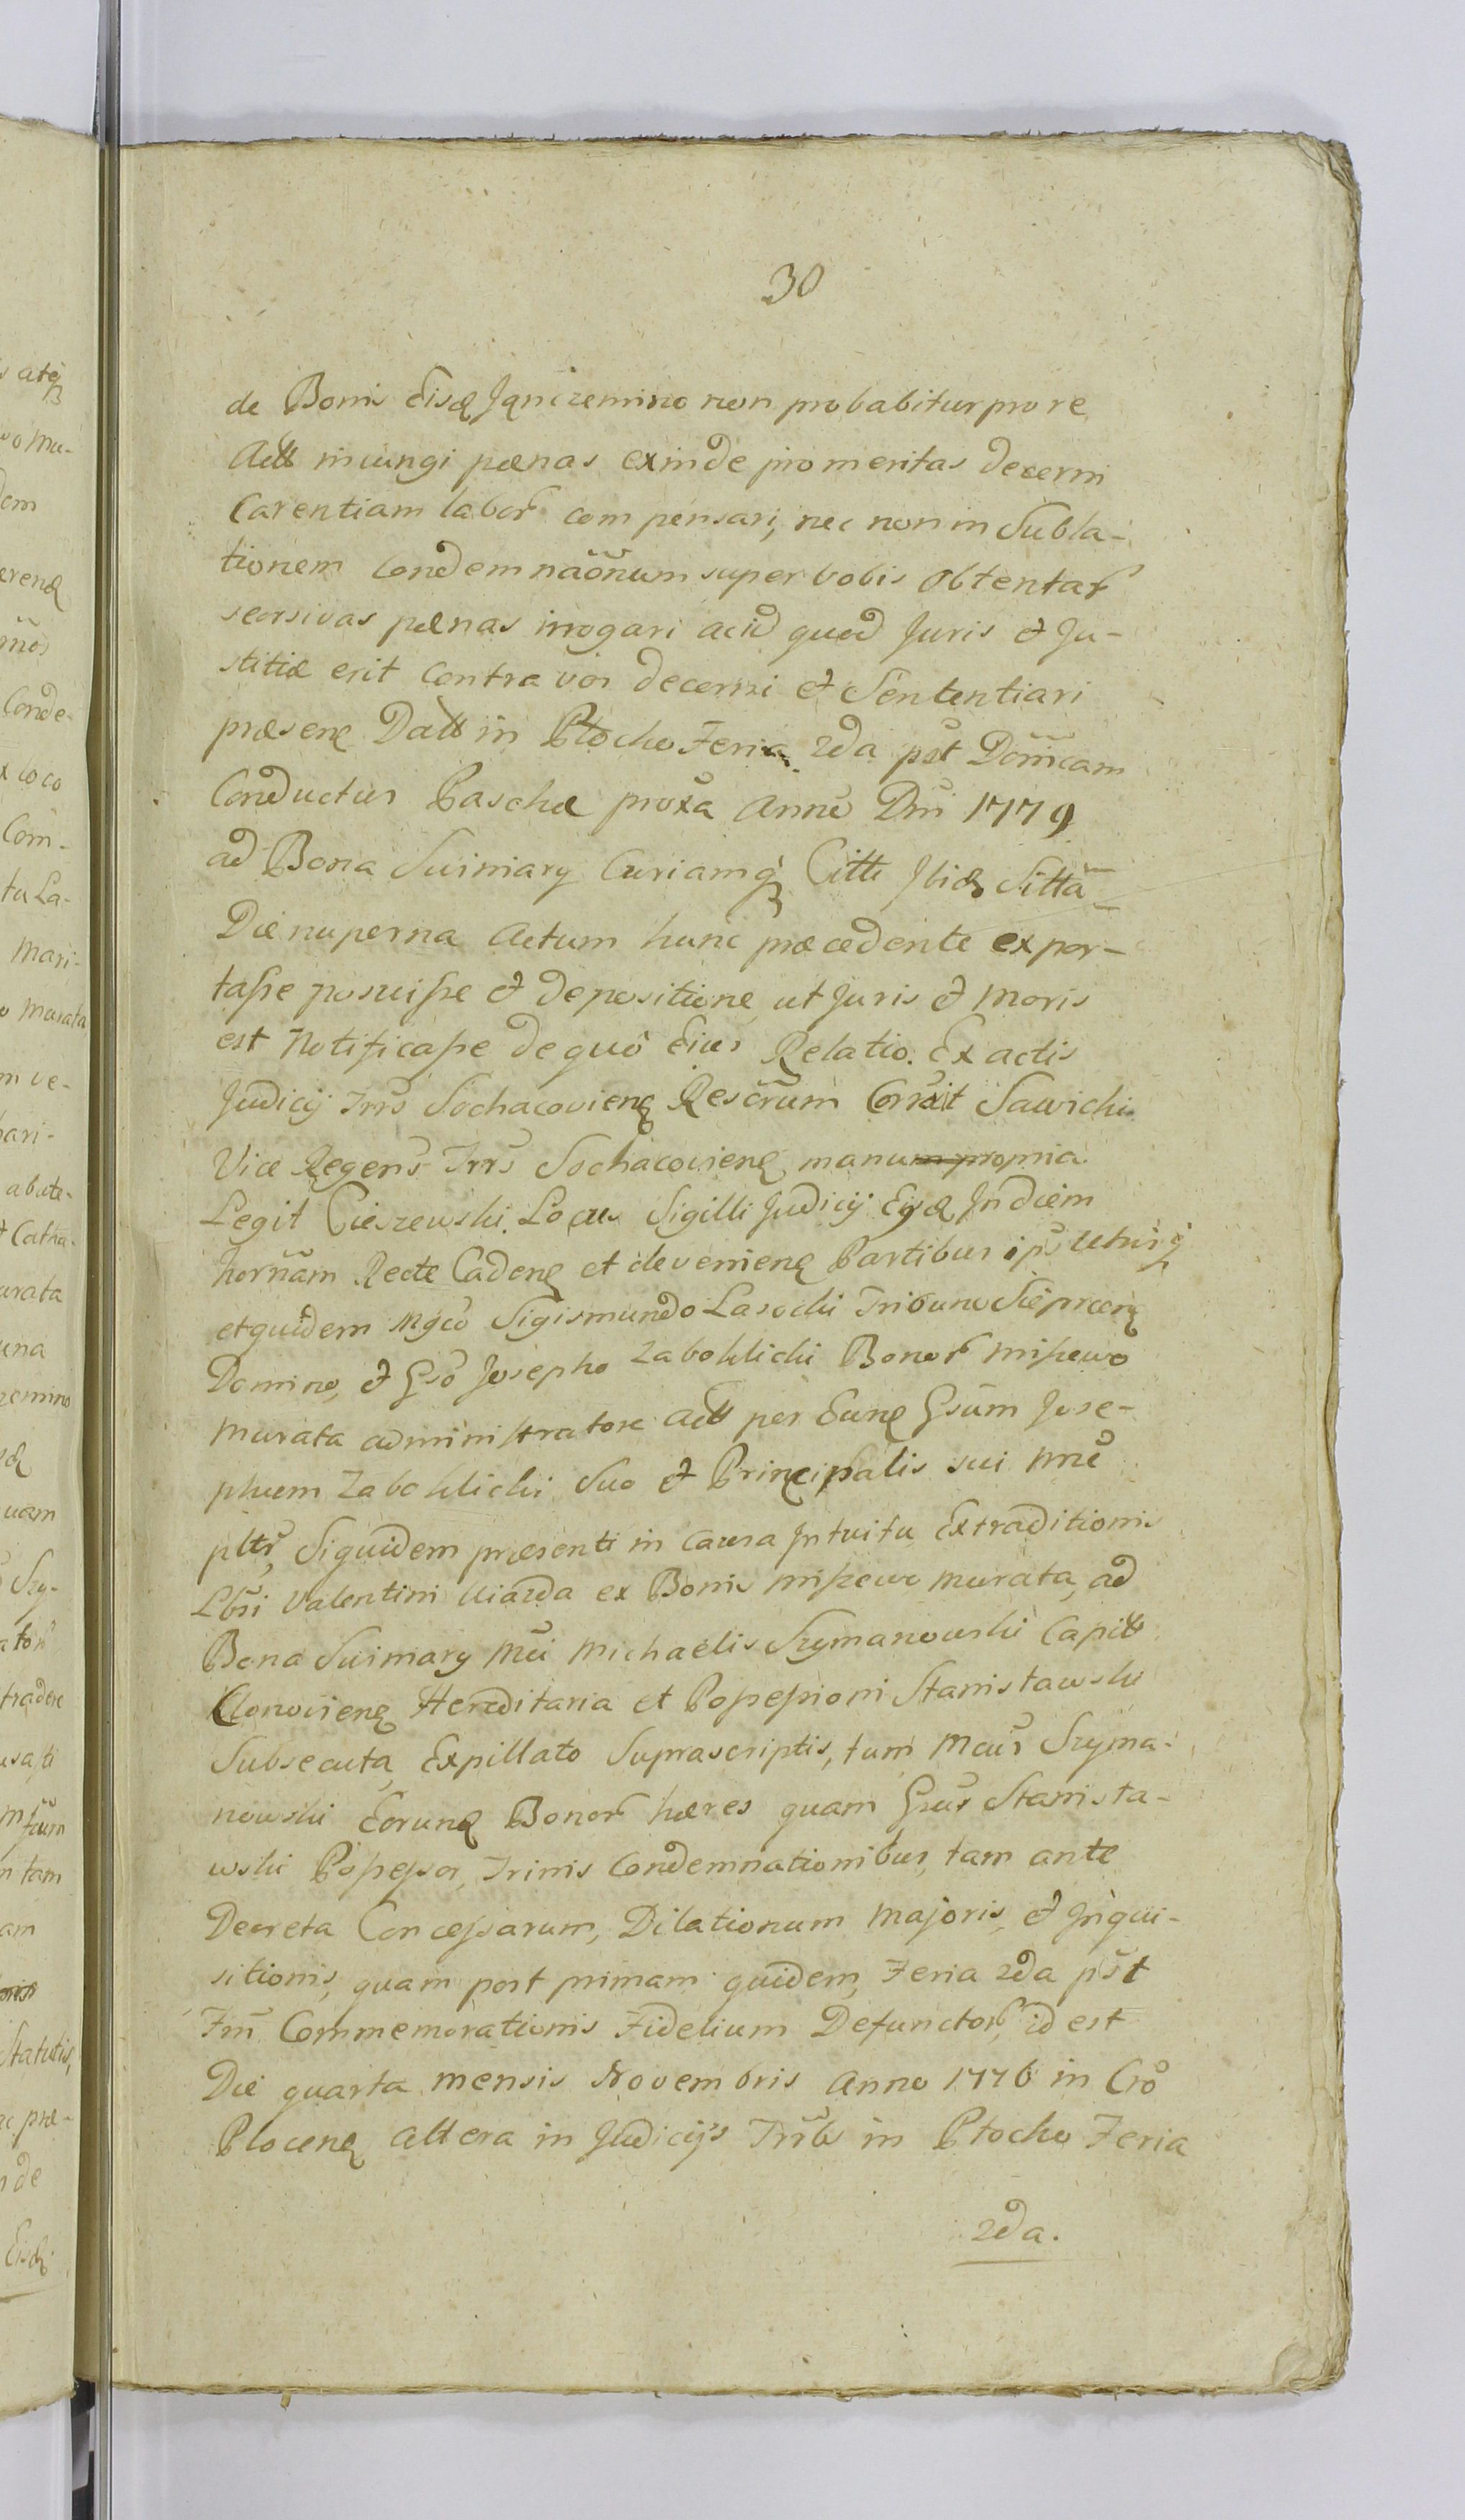 30
de Bonis Eisđ Jgnizemino non probabitur prore
Actt iniungi pœnas exinde promeritas decerni
Carentiam labor compensari, nec non in Subla-
tionem Condemnãõnum super vobis obtentar
seorsivas pœnas irrogari aliud quod Juris et Ju-
stitiæ erit Contra vos decerni et Sententiari
præsenę Datt in Płocko Feria 2da pōt Domīcam
Conductus Paschæ proxa Anno Dni 1779
ad Bona Suimiary Curiamq Citti Ibiđ Sittã
Die nuperna Actum hunc præcedente expor-
tasse posuisse et depositione ut Juris et Moris
est Notificasse de quo Eius Relatio. Ex actis
Judicij Trrs Sochacovienę Rescrum Corrxit Sawicki
Vice Regens Trrs Sochacovienę manum propria
Legit Cieszewski. Locus Sigilli Judicij Eijđ In diem
hornam Recte Cadenę et devenienę Partibus ips utrisq
et quidem Mgco Sigismundo Lasocki Tribuno Sieprcenę
Domino, et Gso Josepho Zaboklicki Bonor Miszewo
Murata administratore Actt per Eunę Gsum Jose-
phum Zaboklicki Suo et Principalis sui nne
pltr, Siquidem præsenti in causa Intuitu Extraditionis
Lbri Valentini Uiazda ex Bonis Miszewo Murata, ad
Bona Suimary Mci Michaelis Szymanowski Capitt
Clonovienę Hereditaria et Possessioni Stanisławski
Subsecuta, Expillato Suprascriptis, tum Mcus Szyma-
nowski Eorunđ Bonor hæres quam Gsus Stanisła-
wski Possessor, Trinis Condemnationibus, tam ante
Decreta Concessarum, Dilationum Majoris, et Inqui-
sitionis, quam post primam quidem, Feria 2da pst
Fm Commemorationis Fidelium Defunctor, id est
Die quarta mensis Novembris Anno 1776 in Cro
Plocenę altera in Judicijs Trrib in Płocko Feria
2da.